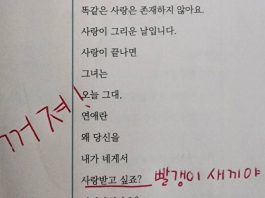 똑같은 사랑은 존재하지 않아요.
사랑이 그리운 날입니다.
사랑이 끝나면
그녀는
오늘 그대,
연애란
왜 당신을
내가 네게서
사랑받고 싶죠? 빨갱이 새끼야
꺼져!